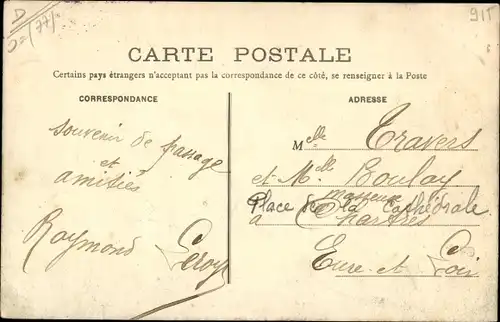 D
D=(77)
91T
CARTE POSTALE
Certains pays étrangers n'acceptant pas la correspondance de ce côté, se renseigner à la Poste
CORRESPONDANCE
souvenir de passage
et
amitiés
Raymond Leroy
ADRESSE
Melle Travers
et Melle Boulay
masseur
Place de la Cathédrale
à Chartres
Eure-et-Loir